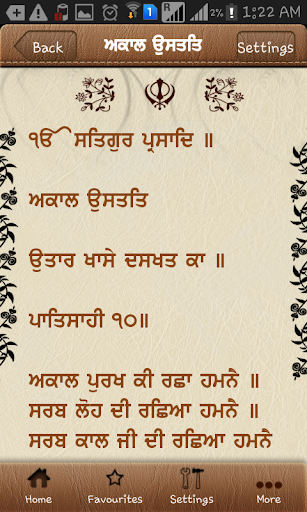 1:22 AM
Back
ਅਕਾਲ ਉਸਤਤਿ
Settings
ੴ ਸਤਿਗੁਰ ਪ੍ਰਸਾਦਿ ॥
ਅਕਾਲ ਉਸਤਤਿ
ਉਤਾਰ ਖਾਸੇ ਦਸਖਤ ਕਾ ॥
ਪਾਤਿਸਾਹੀ ੧੦॥
ਅਕਾਲ ਪੁਰਖ ਕੀ ਰਛਾ ਹਮਨੈ ॥
ਸਰਬ ਲੋਹ ਦੀ ਰਛਿਆ ਹਮਨੈ ॥
ਸਰਬ ਕਾਲ ਜੀ ਦੀ ਰਛਿਆ ਹਮਨੈ
Home
Favourites
Settings
More